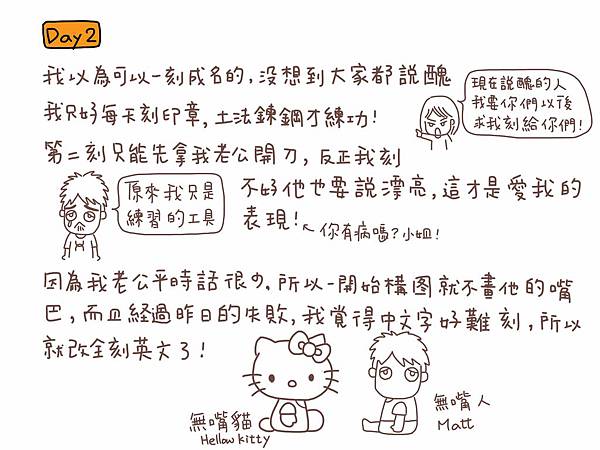 Day 2
我以為可以一刻成名的，沒想到大家都說醜
我只好每天刻印章，土法鍊鋼才練功！
現在說醜的人
我要你們以後
求我刻給你們！
第二刻只能先拿我老公開刀，反正我刻
不好他也要說漂亮，這才是愛我的
表現！
原來我只是
練習的工具
你有病嗎？小姐！
因為我老公平時話很少，所以一開始構图就不畫他的嘴
巴，而且経過昨日的失敗，我覚得中文字好難刻，所以
就改全刻英文了！
無嘴貓
Hellow kitty
無嘴人
Matt